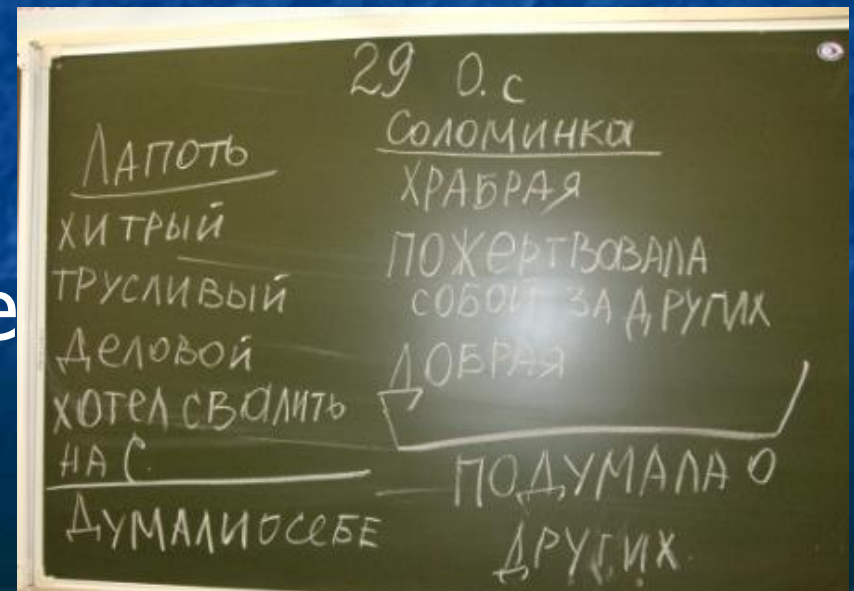 29 О.с
Лапоть
хитрый
трусливый
деловой
хотел свалить
на С.
думали о себе
Соломинка
храбрая
пожертвовала
собой за других
добрая
подумала о
других.
е